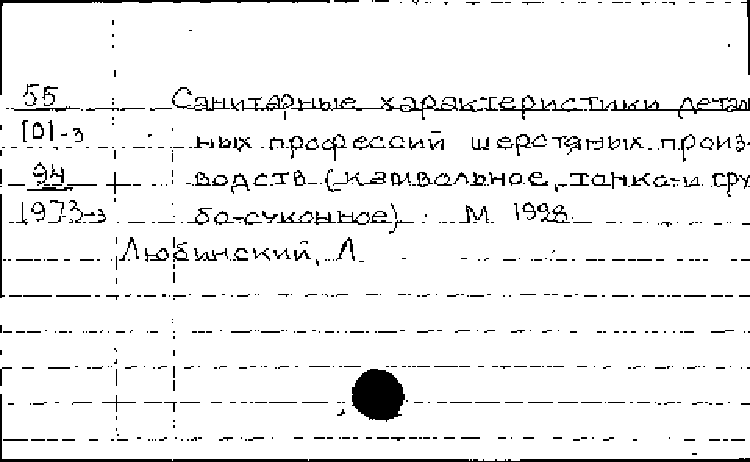 55
Санитарные характеристики детал
101-з
ных профессий шерстяных произ-
94
водств (камвольное, тонко-и гру
1973-з
бо-суконное) М 1928
Любинский, Л